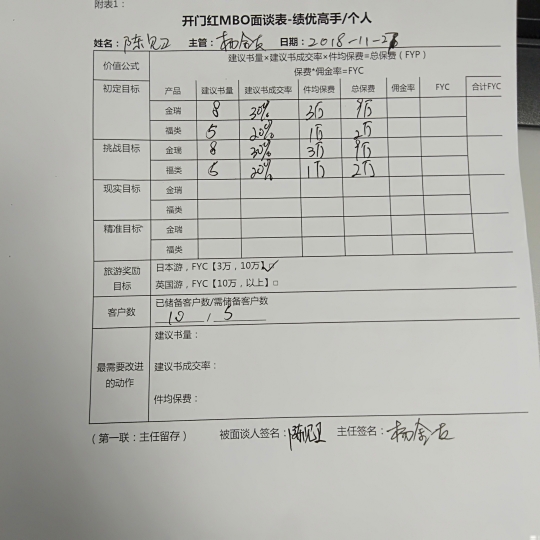 附表1：
开门红MBO面谈表-绩优高手/个人
姓名：陈见卫 主管：杨金友 日期：2018-11-2
价值公式 建议书量×建议书成交率×件均保费=总保费（FYP）
保费*佣金率=FYC
初定目标 产品 建议书量 建议书成交率 件均保费 总保费 佣金率 FYC 合计FYC
金瑞 8 30% 3万 9万
福类 5 20% 1万 2万
挑战目标 金瑞 8 30% 3万 9万
福类 6 20% 1万 2万
现实目标 金瑞
福类
精准目标 金瑞
福类
旅游奖励目标 日本游，FYC【3万，10万】☑
英国游，FYC【10万，以上】□
客户数 已储备客户数/需储备客户数
10 / 5
最需要改进的动作 建议书量：
建议书成交率：
件均保费：
（第一联：主任留存） 被面谈人签名：陈见卫 主任签名：杨金友